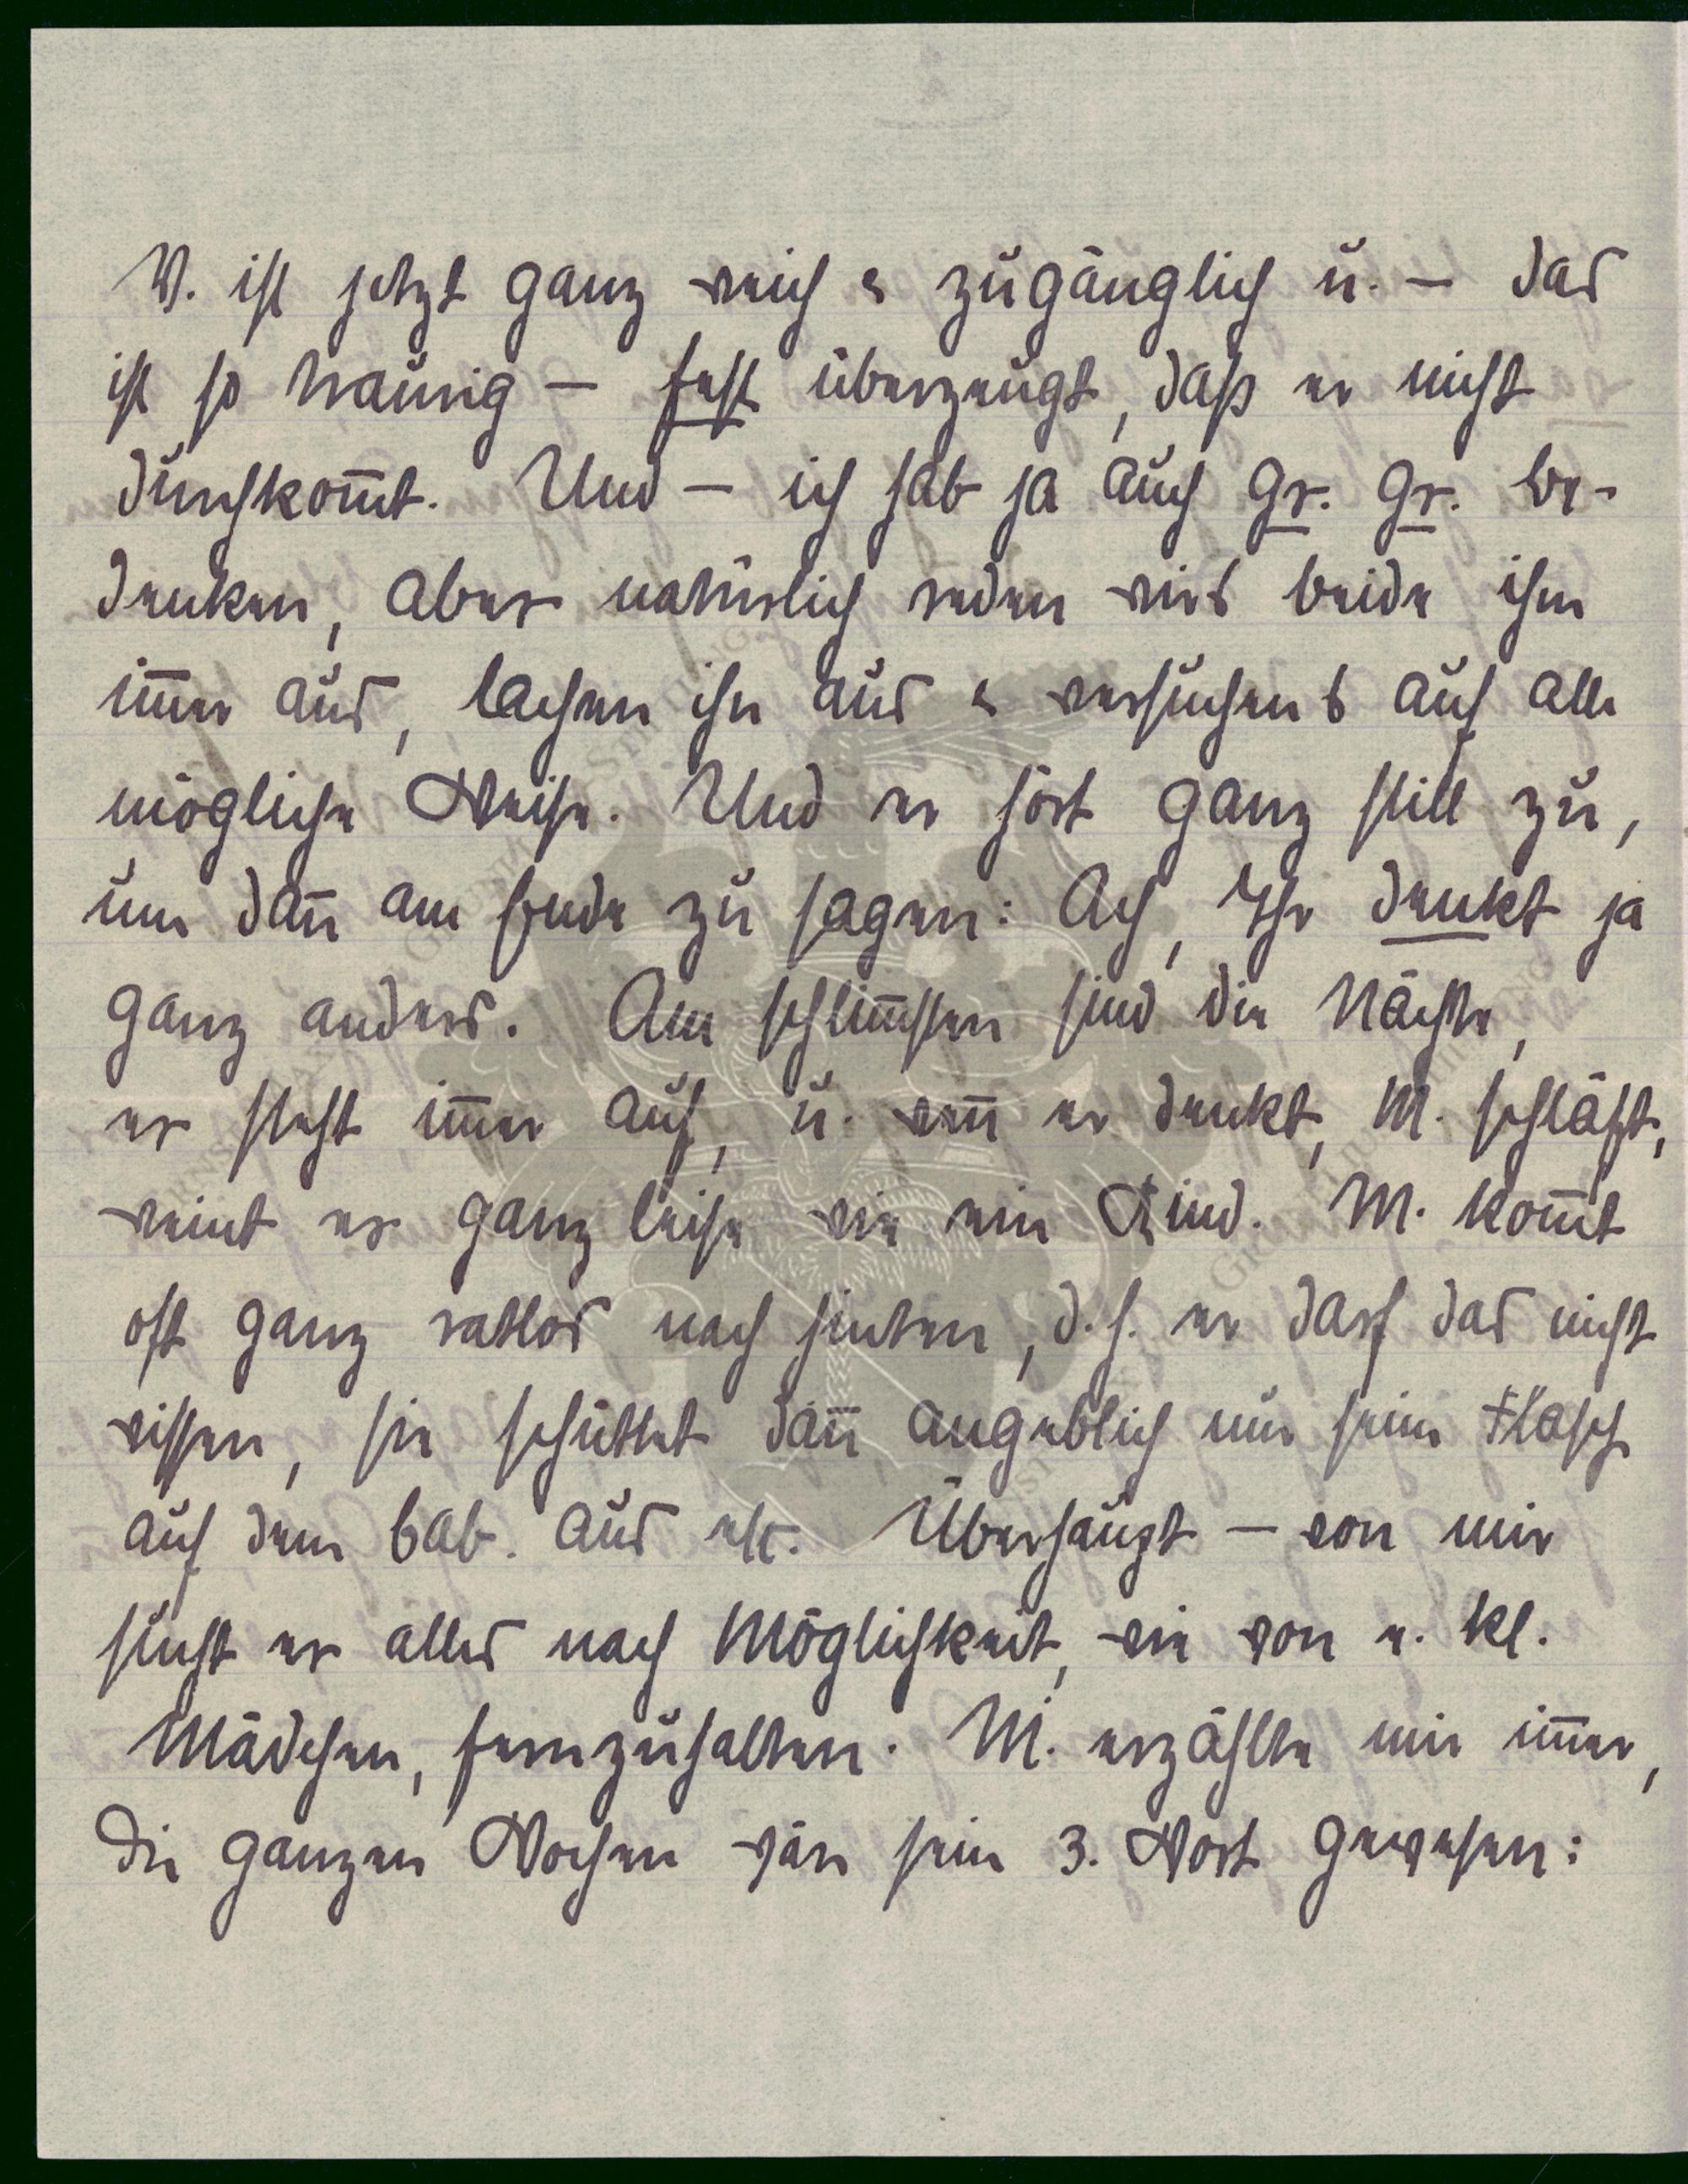 V. ist jetzt ganz weich & zugänglich u. – das
ist so traurig – fest überzeugt, daß er nicht
durchkom̅t. Und – ich hab ja auch Gr. Gr. Be-
denken, aber natürlich reden wirs beide ihm
im̅er aus, lachen ihn aus & versuchens auf alle
mögliche Weise. Und er hört ganz still zu,
um dan̅ am Ende zu sagen: Ach, Ihr denkt ja
ganz anders. Am schlim̅sten sind die Nächte,
er steht im̅er auf, u. wen̅ er denkt, M. schläft,
weint er ganz leise wie ein Kind. M. kom̅t
oft ganz ratlos nach hinten, d.h. er darf das nicht
wissen, sie schüttet dan̅ angeblich nur seine Flasch
auf dem Cab. aus etc. Überhaupt – von mir
sucht er alles nach Möglichkeit, wie von e. kl.
Mädchen, fernzuhalten. M. erzählte mir im̅er,
die ganzen Wochen wär sein 3. Wort gewesen: